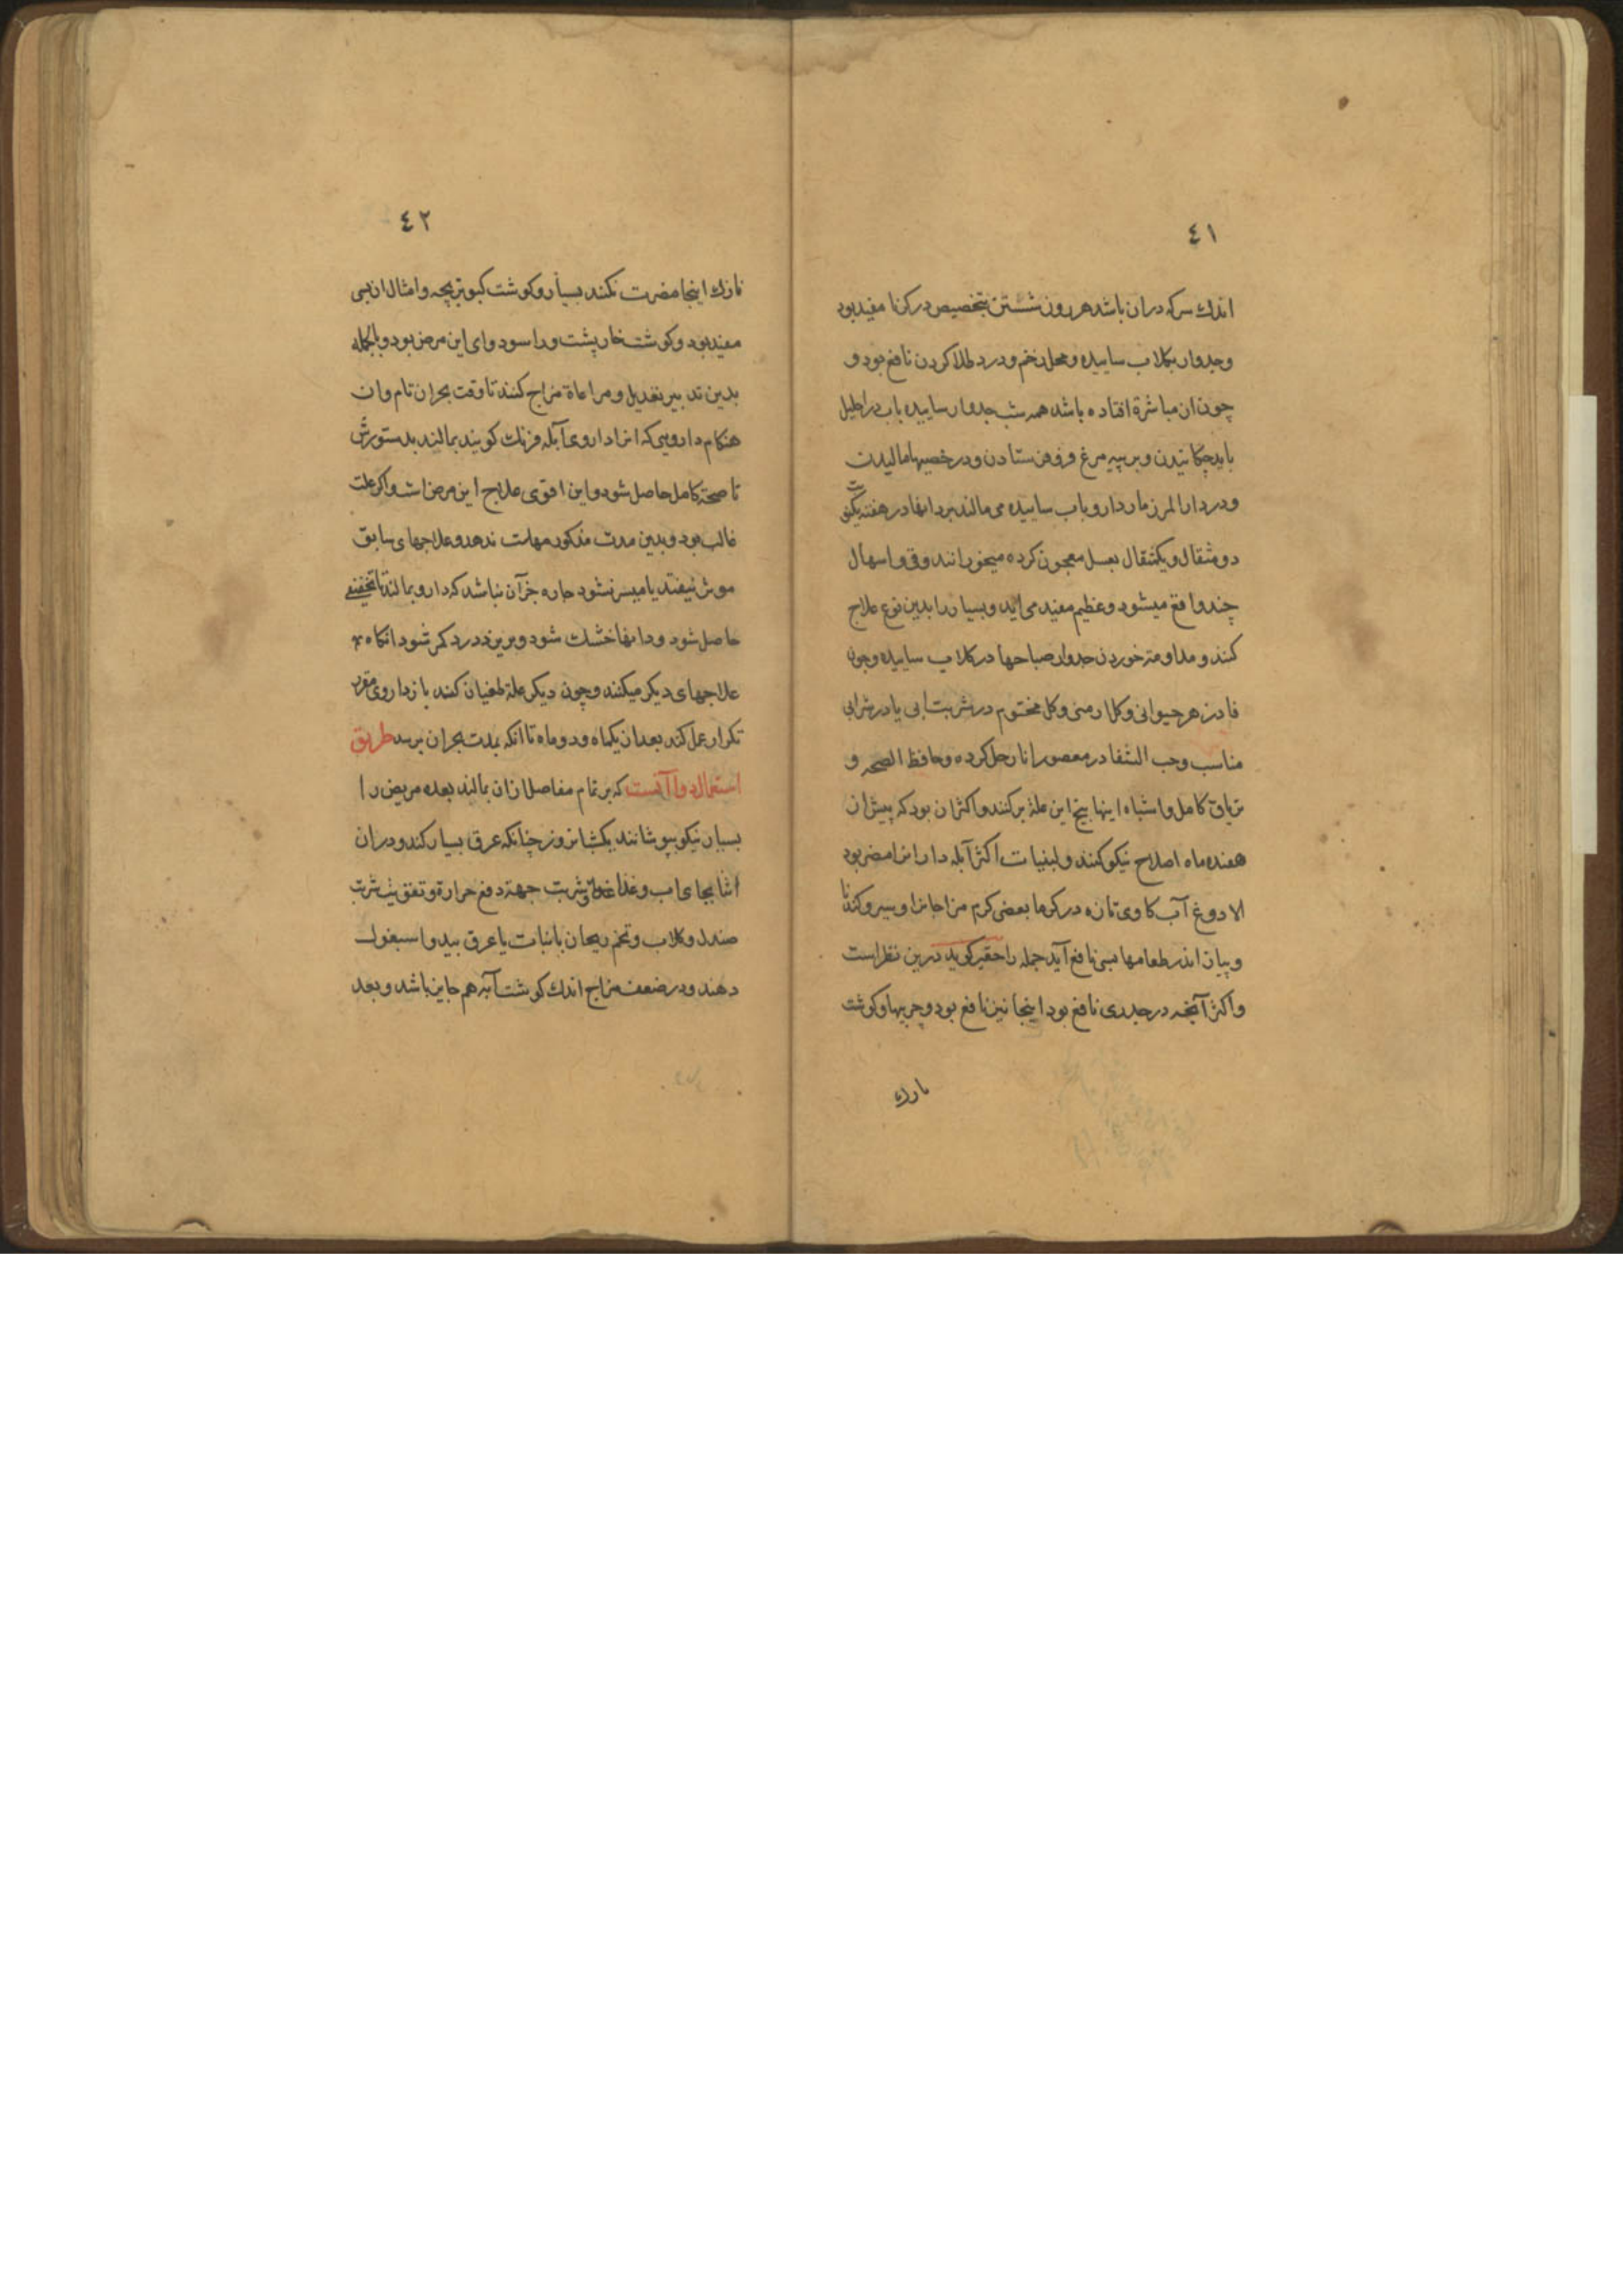 ٤١
اندك سركه دران باشد هر روز شستن بتخصيص در كرما مفيد بود
وجدوار بكلاب ساييده ومحل زخم ودرد طلا كردن نافع بود و
چون ان مباشرة افتاده باشد همه شب جدوار ساييده باب در احليل
بايد چكانيدن وبر پيه مرغ فرستادن ودر خصيها ماليدن
ودر دار المرز مارداروباب ساييده مى مالند بر دانها در هفته يكنوبت
دو مثقال ويكمثقال بعسل معجون كرده ميخورانند وقى واسهال
چند واقع ميشود وعظيم مفيد مى ايد وبسيار را بدين نوع علاج
كنند ومداومة خوردن جدوار صباحها در كلاب ساييده وچون
فادزهر حيوانى وكل ارمنى وكل مختوم در شربت ابى يا در شرابى
مناسب وحب الشفا در معصور انار حل كرده وحافظ الصحه و
ترياق كامل واشباه اينها بيخ اين علة بركنند واكثر ان بود كه پيش از
هفده ماه اصلاح نيكو كنند ولبنيات اكثر آبله داران را مضر بود
الا دوغ آب كاوى تازه در كرما بعضى كرم مزاجانرا وسير وكندنا
وپياز اندر طعامها بسى نافع آيد جمله را حقير كويد درين نظر است
واكثر آنچه در جدرى نافع بود اينجا نيز نافع بود وچربيها وكوشت
نازك
٤٢
نازك اينجا مضرت نكند بسيار وكوشت كبوتر بچه وامثال ان بسى
مفيد بود وكوشت خارپشت وراسو دواى اين مرض بود وبالجمله
بدين تدبير تعديل ومراعاة مزاج كنند تا وقت بحران تام وان
هنكام دارويى كه انرا داروى آبله فرنك كويند بمالند بدستورش
تا صحة كامل حاصل شود واين اقوى علاج اين مرض است واكر علت
غالب بود وبدين مدت مذكور مهلت ندهد وعلاجهاى سابق
موثر نيفتد يا ميسر نشود چاره جز آن نباشد كه دارو بمالند تا تخفيفى
حاصل شود ودانها خشك شود وبريزد درد كمتر شود انكاه
علاجهاى ديكر ميكنند وچون ديكر علة طغيان كند باز داروى مقرر
تكرار عمل كند بعد از يكماه ودو ماه تا انكه بمدت بحران برسد طريق
استعمال دوا آنست كه بر تمام مفاصل ازان بمالند بعده مريض را
بسيار نيكو بپوشانند يكشبانروز چنانكه عرق بسيار كند ودران
اثنا بجاى اب وغذا شربت جهة دفع حرارة وتقويت شربت
صندل وكلاب وتخم ريحان با نبات يا عرق بيد واسبغول
دهند ودر ضعف مزاج اندك كوشت آبه هم جايز باشد وبعد